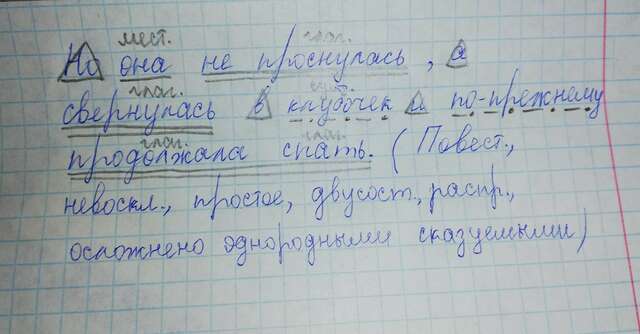 мест. глаг.
Но она не проснулась, а
глаг. сущ.
свернулась в клубочек и по-прежнему
глаг. глаг.
продолжала спать. (Повест.,
невоскл., простое, двусост., распр.,
осложнено однородными сказуемыми)